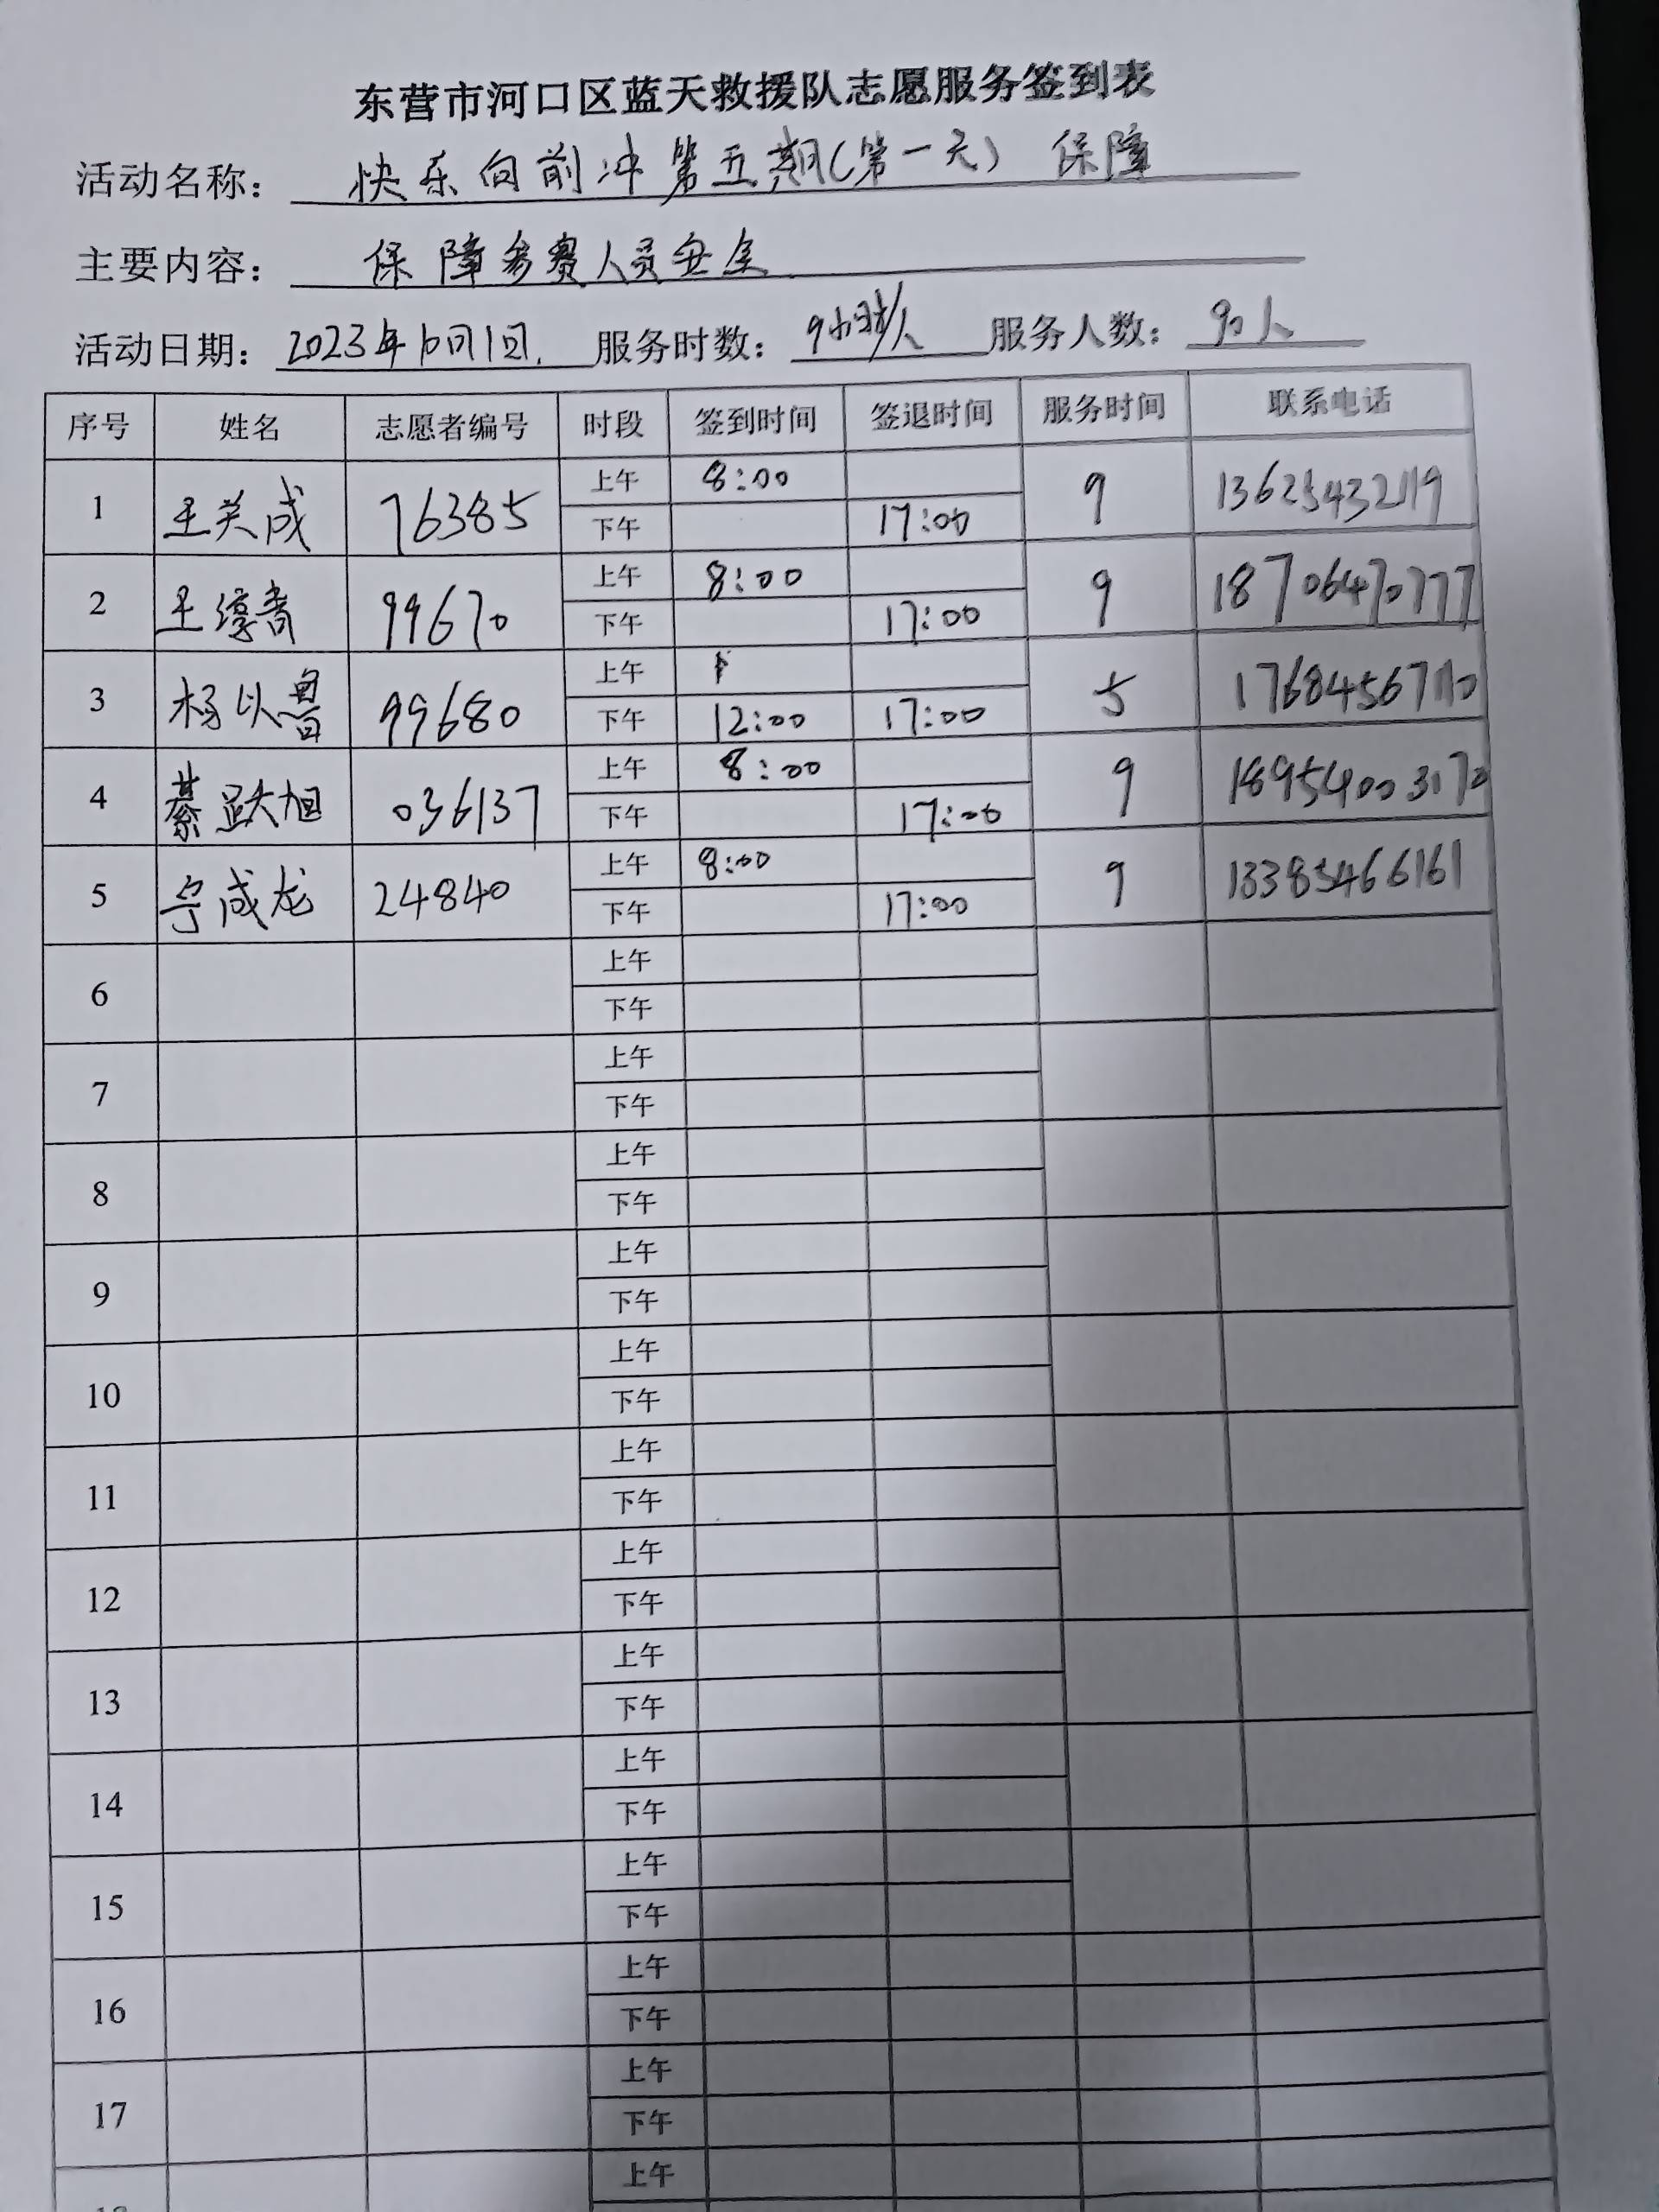 东营市河口区蓝天救援队志愿服务签到表
活动名称： 快乐向前冲第五期(第一天) 保障
主要内容： 保障参赛人员安全
活动日期： 2023年6月1日. 服务时数： 9小时/人 服务人数： 90人
序号 姓名 志愿者编号 时段 签到时间 签退时间 服务时间 联系电话
1 王关成 76385 上午 8:00 9 13625432119
下午 17:00
2 王淳青 99670 上午 8:00 9 18706470777
下午 17:00
3 杨以鲁 99680 上午 5 17684567110
下午 12:00 17:00
4 綦跃旭 036137 上午 8:00 9 18954003170
下午 17:00
5 宁成龙 24840 上午 8:00 9 13385466161
下午 17:00
6 上午
下午
7 上午
下午
8 上午
下午
9 上午
下午
10 上午
下午
11 上午
下午
12 上午
下午
13 上午
下午
14 上午
下午
15 上午
下午
16 上午
下午
17 上午
下午
上午